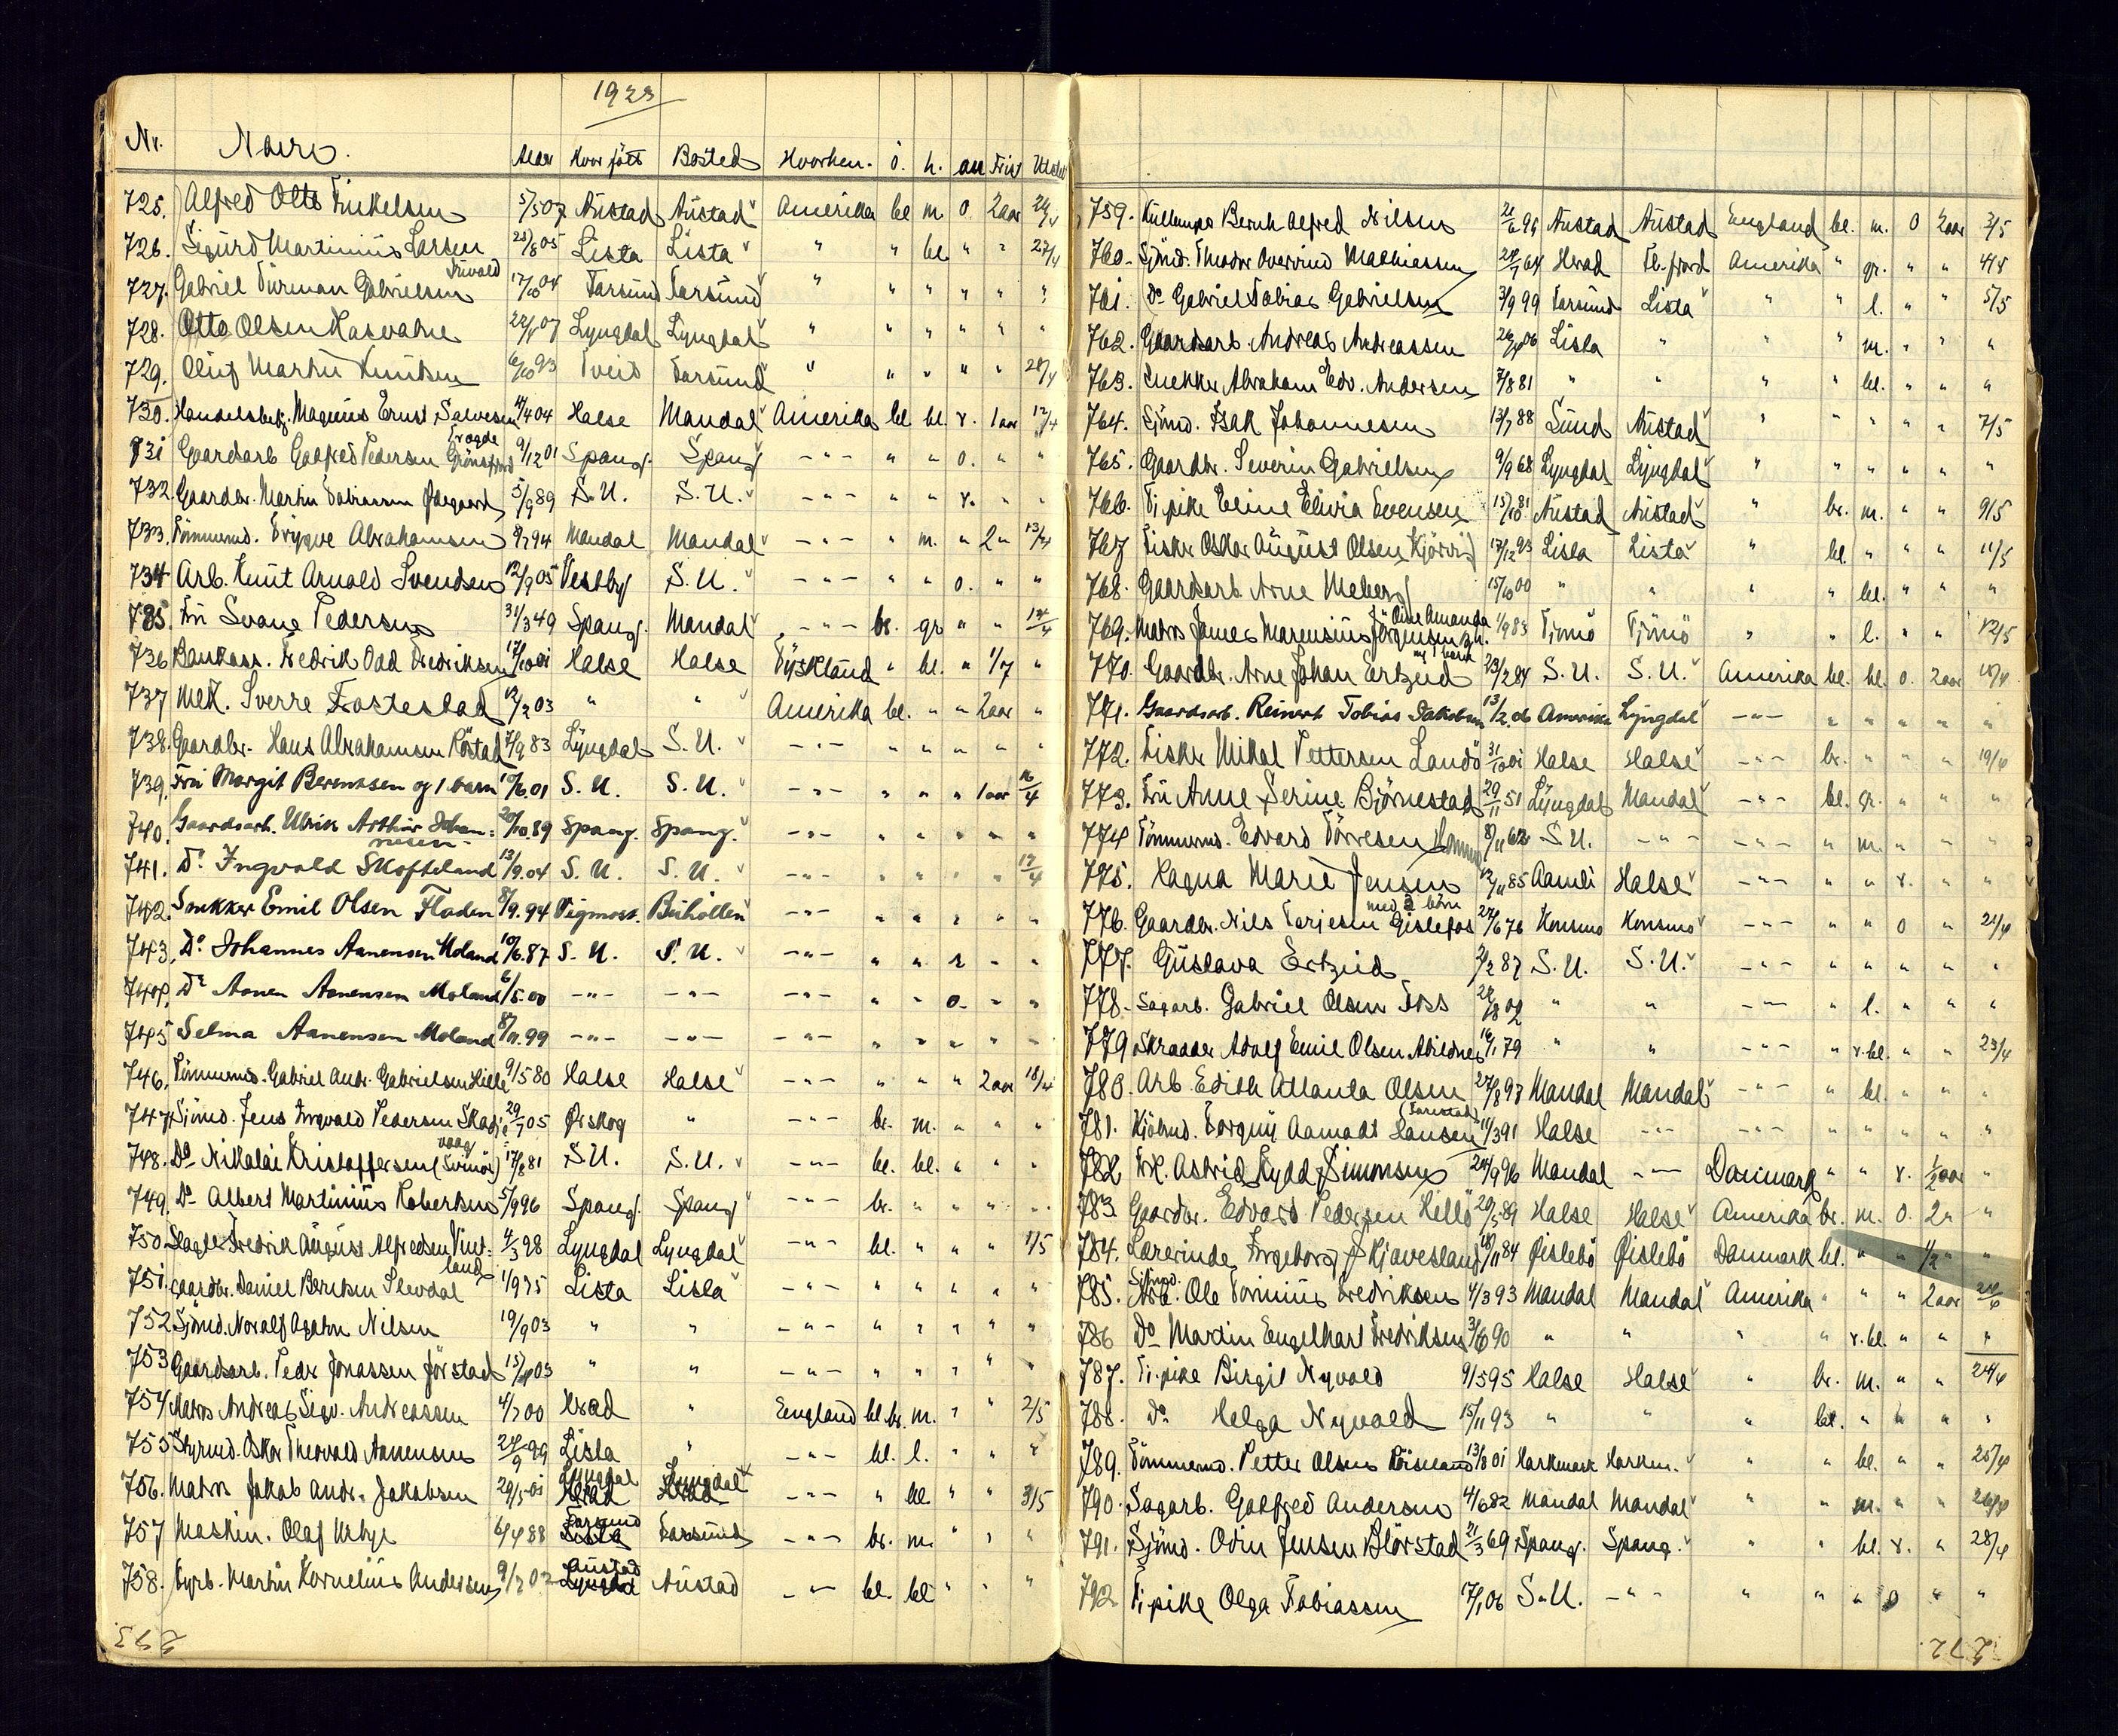 1923
Nr. Navn. Alder Hvor födt Bosted Hvorhen. ö. h. an Frist Utstedt
725. Alfred Otto Tinkelsen 5/5 07 Austad Austad Amerika bl m. o. 2 aar 24/4
726. Sigurd Martinius Larsen 28/8 05 Lista Lista " " bl. " " 27/4
727. Gabriel Furman Gabrielsen 17/10 04 Farsund Farsund " " " " " "
728. Otto Olsen 22/1 07 Lyngdal Lyngdal " " " " " "
729. Oluf Martin Knutsen 6/10 93 Tveid Farsund " " " " " 28/4
730. Handelsbetj. Magnus Ernst Salvesen 4/4 04 Halse Mandal Amerika bl bl. r. 1 aar 12/4
731 Gaardsarb Godtfred Pedersen 9/12 01 Spang. Spang - " - " " o. " "
732. Gaardbr. Martin Tobiassen Ødegaard 5/9 89 S. U. S. U. - " - " " r. " "
733. Tömmermd. Trygve Abrahamsen 8/7 94 Mandal Mandal - " - " m. " 2 " 13/4
734 Arb. Knut Arnold Svendsen 12/9 05 Vestby S. U. - " - " " o. " "
735. Fru Svane Pedersen 31/3 49 Spang. Mandal - " - br. gr " " 14/4
736 Bankass. Fredrik Odd Fredriksen 17/10 01 Halse Halse Tyskland " bl. " 1/7 "
737 Mek. Sverre Fostestad 12/2 03 " " Amerika bl. " " 2 aar "
738. Gaardbr. Hans Abrahamsen Röstad 7/9 83 Lyngdal S. U. - " - " " " " "
739. Fru Margit Berentsen og 1 barn 10/6. 01 S. U. S. U. - " - " " " 1 aar 16/4
740. Gaardsarb. Ulrik Arthur Johan=
nesen 20/10. 89 Spang. Spang. - " - " " " " "
741. Do Ingvald Skofteland 13/9. 04 S. U. S. U. - " - " " " " 17/4
742. Snekker Emil Olsen Floden 8/9. 94 Vigmost. Buholten - " - " " " " "
743. Do Johannes Aanensen Moland 10/6. 87 S. U. S. U. - " - " " r " "
744. Do Aanen Aanensen Moland 6/5. 00 - " - - " - - " - " " o. " "
745 Selma Aanensen Moland 8/11. 99 - " - - " - - " - " " " " "
746. Tömmermd. Gabriel Andr. Gabrielsen Hille 9/5 80 Halse Halse - " - " " " 2 aar 18/4
747. Sjömd. Jens Ingvald Pedersen 29/7 05 Ørskog " - " - br. m. " " "
748. Do Nikolai Kristoffersen (Svinör) 17/8 81 S. U. S. U. - " - bl. bl. " " "
749. Do Albert Martinius Robertsen 5/9 96 Spang. Spang - " - br. " " " "
750. Slagter Fredrik August Alfredsen Vint=
land 4/3 98 Lyngdal Lyngdal - " - bl. " " " 1/5
751. Gaardbr. Daniel Berntsen Slevdal 1/9 75 Lista Lista - " - " " " " "
752 Sjömd. Noralf Agathon Nilsen 19/9 03 " " - " - " " " " "
753 Gaardsarb. Peder Jonassen Jörstad 15/4 03 " " - " - " " " " "
754 Matros Andreas Sigv. Andreassen 4/7 00 Herad " England bl. br. m. " " 2/5
755 Styrmd. Oskar Theovald Aanensen 24/9 99 Lista " - " - bl. l. " " "
756. Matros Jakob Andr. Jakobsen 29/5 01 Lyngdal Lyngdal - " - " bl. " " 3/5
757 Maskin. Olaf 6/4 88 Farsund Farsund - " - br. m. " " "
758. Martin Kornelius Andersen 9/7 02 Austad Austad - " - bl. bl. " " "
293.
759. Bernh Alfred Nilsen 21/6 96 Austad Austad England bl. m. O 2 aar 3/5
760. Sjömd. Theodor Mathiassen 28/7 64 Herad Fl.fjord Amerika " gr. " " 4/5
761. Do Gabriel Tobias Gabrielsen 3/9 99 Farsund Lista " " l. " " 5/5
762. Gaardsarb. Andreas Andreassen 26/4 06 Lista " " " m. " " "
763. Snekker Abraham Edv. Andersen 7/8 81 " " " " bl. " " "
764. Sjömd. Isak Johannesen 13/7 88 Lund Austad " " " " " 7/5
765. Gaardbr. Severin Gabrielsen 9/9 68 Lyngdal Lyngdal " " " " " "
766. Tj.pike Eline Elivia Evensen 15/10 81 Austad Austad " br. m. " " 9/5
767 Fisker Oskar August Olsen 17/12 93 Lista Lista " bl. " " " 11/5
768. Gaardsarb Arne Meberg 15/10 00 " " " " bl. " " "
769. Matros James Marensius Jörgensen 1/9 83 Tjömö Tjömö " " l. " " 12/5
770. Gaardbr. Arne Johan Ertzeid 23/2 84 S. U. S. U. Amerika bl. bl. o. 2 aar 18/4
771. Gaardsarb. Reinert Tobias Jakobsen 13/2. 06 Amerika Lyngdal - " - " " " " "
772. Fisker Mikal Pettersen Landö 31/10 01 Halse Halse - " - br. " " " 19/4
773. Fru Anne Serine Björnestad 29/11 51 Lyngdal Mandal - " - bl. gr. " " "
774 Tömmermd. Edvard Törresen 8/11 62 S. U. - " - - " - " m. " " "
775. Hagna Marie Jensen
med 2 börn 12/11 85 Aamli Halse - " - " " r. " "
776. Gaardbr. Nils Terjesen Gislefos 27/6 76 Konsmo Konsmo - " - " " O " 21/4
777. Gustava Ertzeid 2/2 87 S. U. S. U. - " - " " " " "
778. Sagarb. Gabriel Olsen Foss 28/8 02 " " - " - " l. " " "
779. Skrædder Adolf Emil Olsen Abildnes 16/1 79 " " - " - " r.bl. " " 23/4
780. Arb. Edith Atlanta Olsen 27/8 93 Mandal Mandal - " - " bl. " " "
781. Torquil Aamodt Hansen 11/3 91 Halse - " - - " - " " " " "
782 Frk. Astrid Kydd Simonsen 24/9 96 Mandal - " - Danmark " " r. 1/2 aar "
783 Gaardbr. Edvard Pedersen Hellö 29/5 89 Halse Halse Amerika br. m. O. 2 " "
784. Lærerinde Ingeborg Kjævesland 18/11 84 Øislebö Øislebö Danmark bl. " " 1/2 " "
785. Sjömd. Ole Tominius Fredriksen 4/3 93 Mandal Mandal Amerika " " " 2 aar 24/4
786 Do Martin Engelhart Fredriksen 3/6 90 " " " " r.bl. " " "
787. Tj.pike Birgit Nyvold 9/5 95 Halse Halse " br. m. " " 24/4
788. Do Helga Nyvold 15/11 93 " " " bl. " " " "
789. Tömmermd. Petter Olsen 13/8 01 Harkmark Harkm. " " bl. " " 25/4
790. Sagarb. Godtfred Andersen 4/6 82 Mandal Mandal " " m. " " 26/4
791. Sjömd. Odin Jensen Blörstad 21/3 69 Spang. Spang. " " bl. r. " 28/4
792 Tj.pike Olga Tobiassen 17/1 06 S. U. - " - " " " o " "
272.